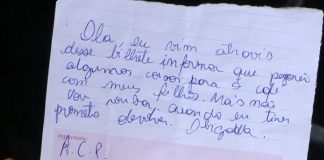 Olá, eu vim através
desse bilhete informar que peguei
algumas coisas para o café
com meus filhos. Mais não
vou roubar, quando eu tiver
prometo devolver. Desculpa
A.C.P.